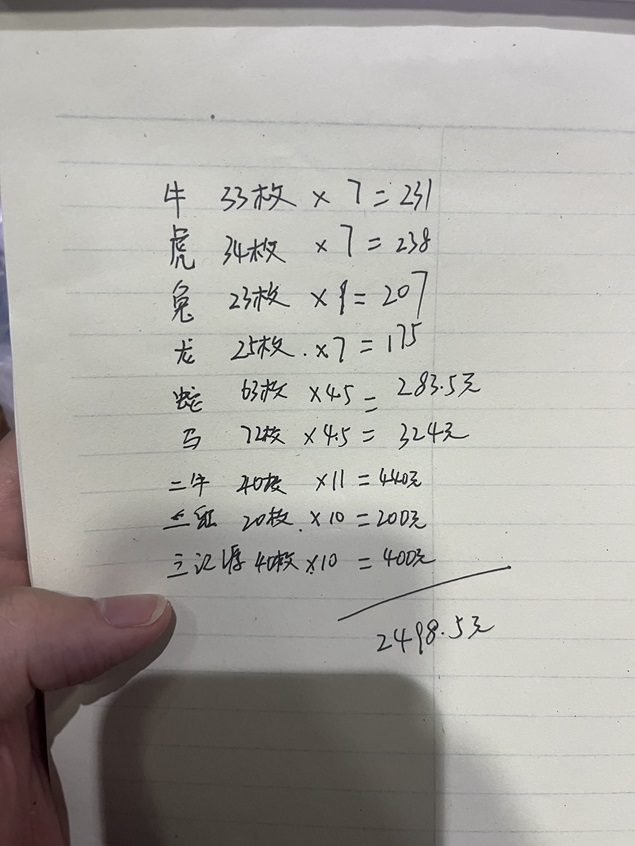 牛 33枚 × 7 = 231
虎 34枚 × 7 = 238
兔 23枚 × 9 = 207
龙 25枚 . × 7 = 175
蛇 63枚 × 4.5 = 283.5元
马 72枚 × 4.5 = 324元
二牛 40枚 × 11 = 440元
20枚 . × 10 = 200元
40枚 × 10 = 400元
2498.5元